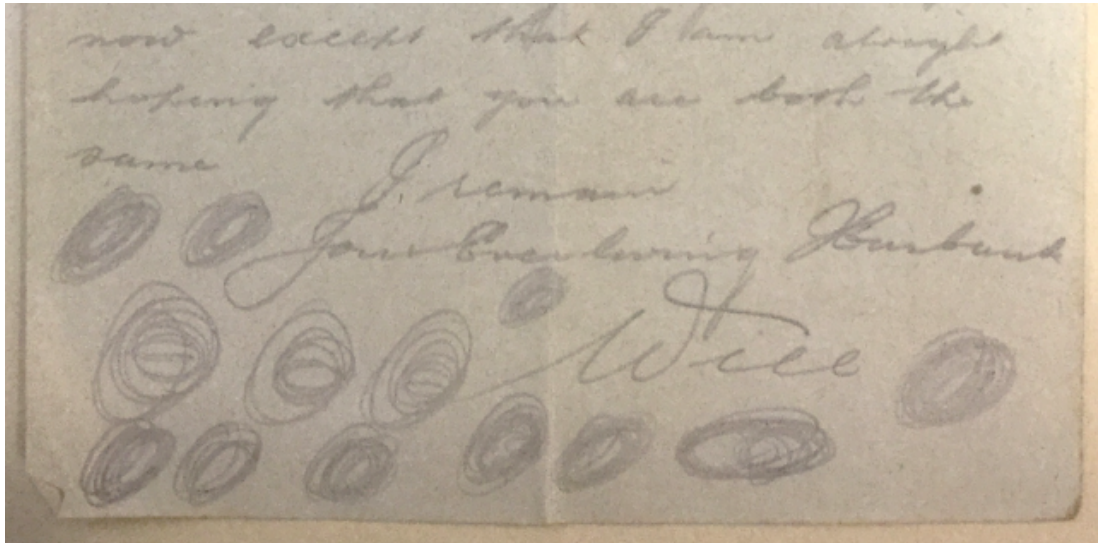 now except that I am alright
hoping that you are both the
same
I remain
Your Ever loving Husband
Will